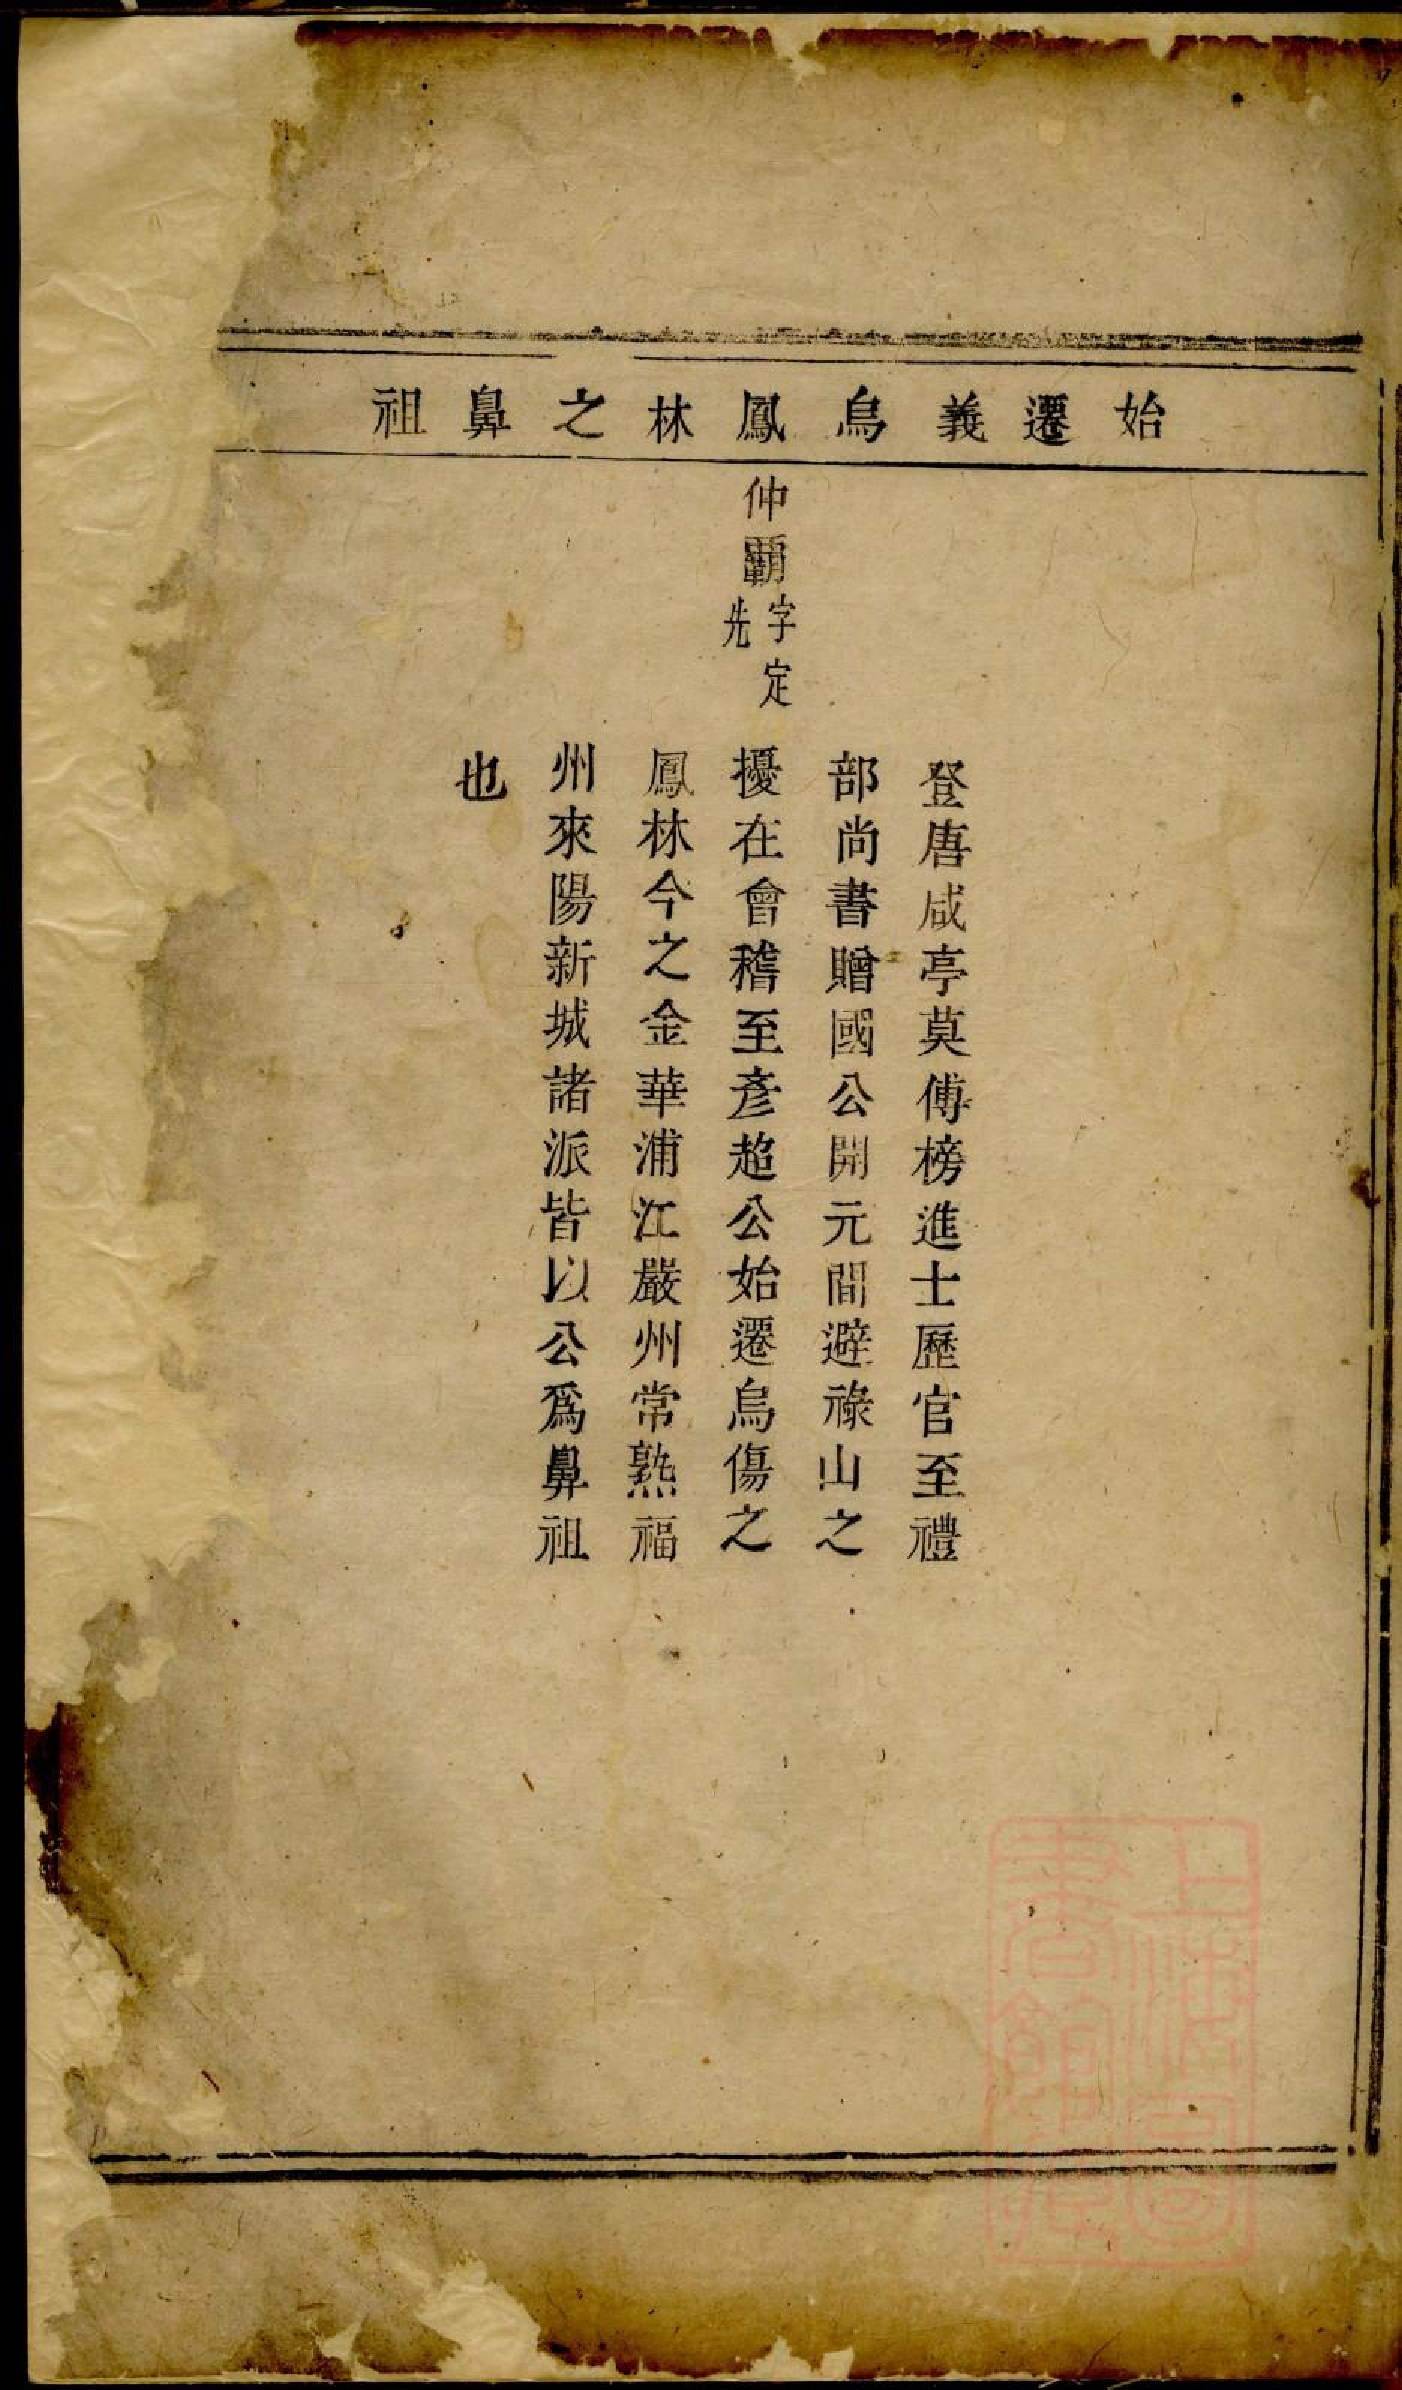 始遷義烏鳳林之鼻祖
仲覇字定先
登唐咸亭莫傅榜進士歷官至禮
部尚書贈國公開元間避祿山之
擾在會稽至彥超公始遷烏傷之
鳳林今之金華浦江嚴州常熟福
州來陽新城諸派皆以公爲鼻祖
也
上海圖
書館藏